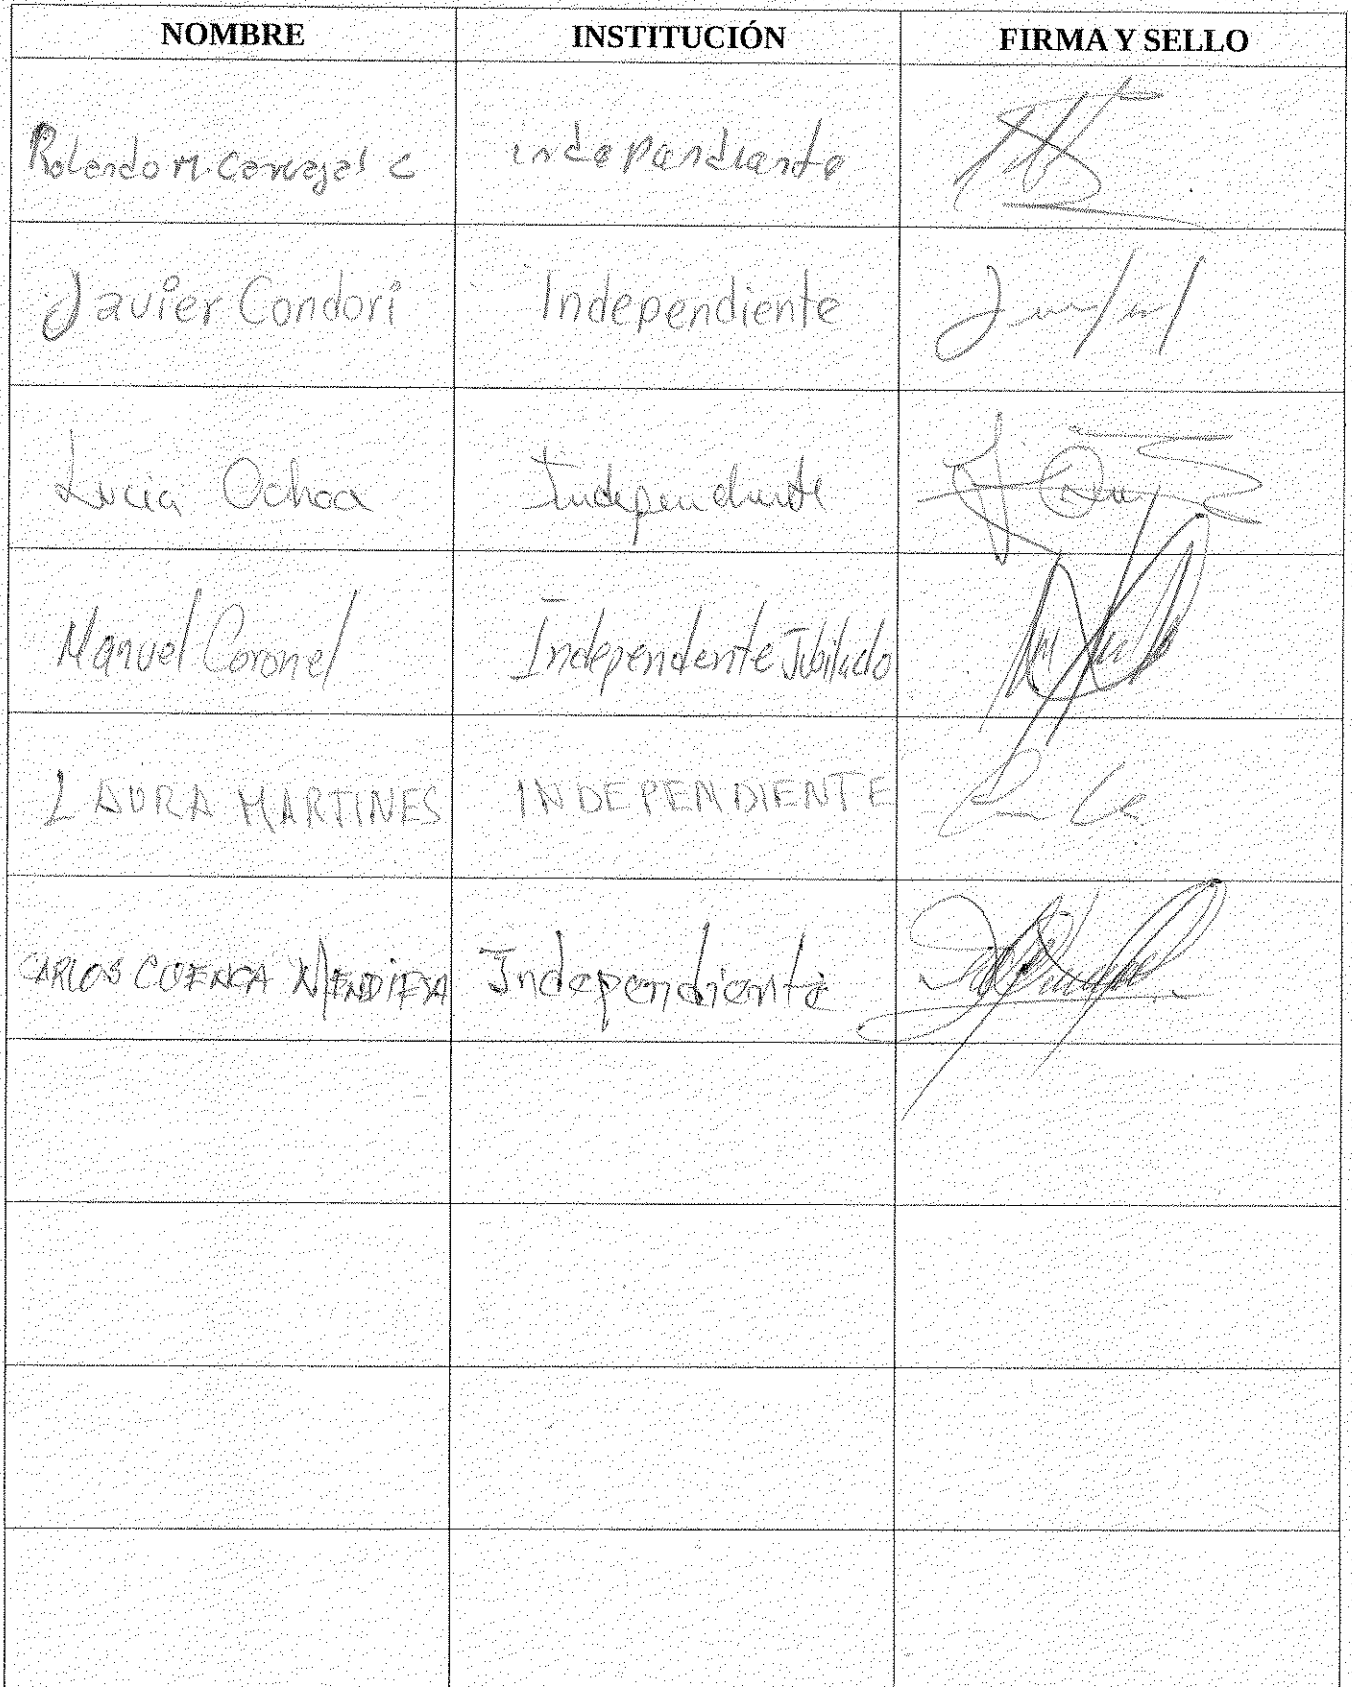 NOMBRE INSTITUCIÓN FIRMA Y SELLO
Rolando M. Carvajal C independiente
Javier Condori Independiente
Lucia Ochoa Independiente
Manuel Coronel Independente Jubilado
LAURA MARTINES INDEPENDIENTE
CARLOS CUENCA MENDIETA Independiente